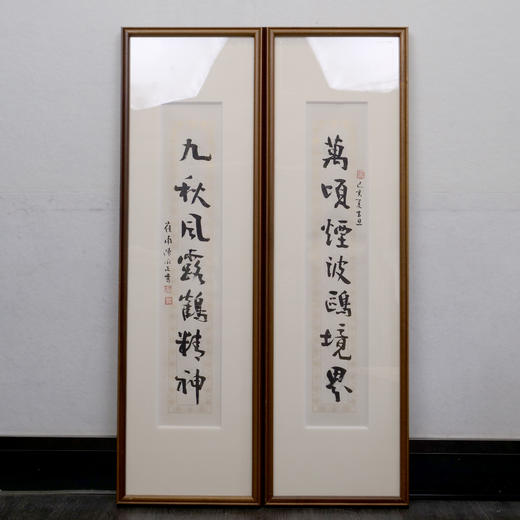 萬頃煙波鷗境界
己亥夏吉旦
九秋風露鶴精神